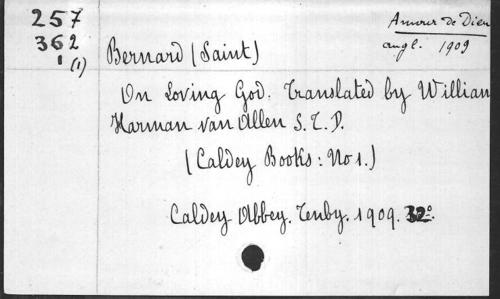 257 Amour de Dieu
362 angl. 1909
1 (1) Bernard (Saint)
On Loving God. Translated by William
Harman van Allen S.T.D.
(Caldey Books: No 1.)
Caldey Abbey. Tenby. 1909. 32º.